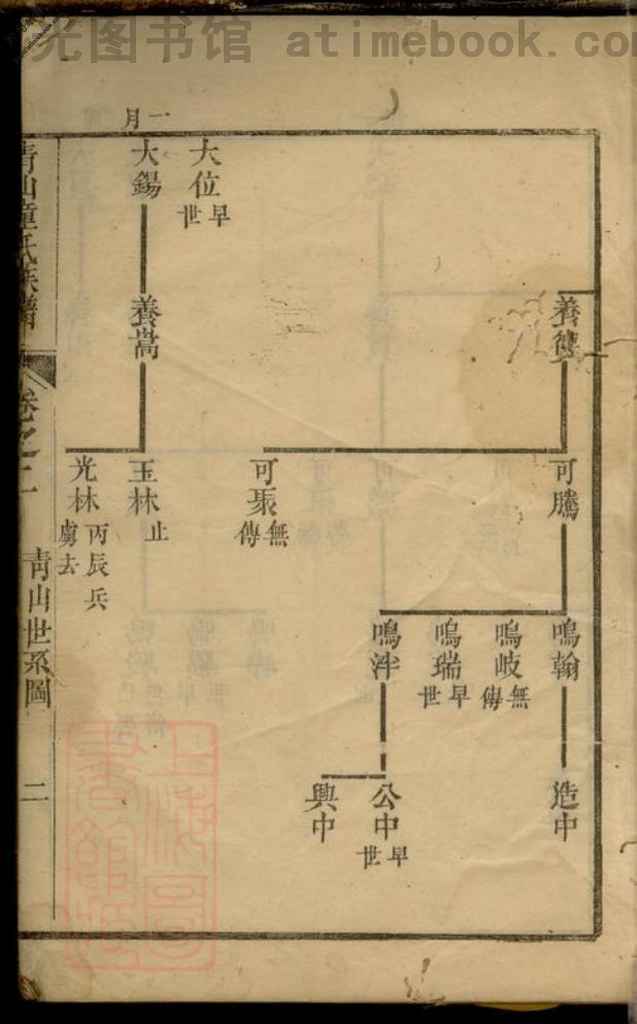 光图书馆 atimebook.co
一月
養儁
可騰
鳴翰
造中
鳴岐
無傳
鳴瑞
早世
鳴泮
公中
早世
興中
可振
無傳
大位
早世
大錫
養嵩
玉林
止
光林
丙辰兵虜去
青山童氏族譜
卷之二
青山世系圖
二